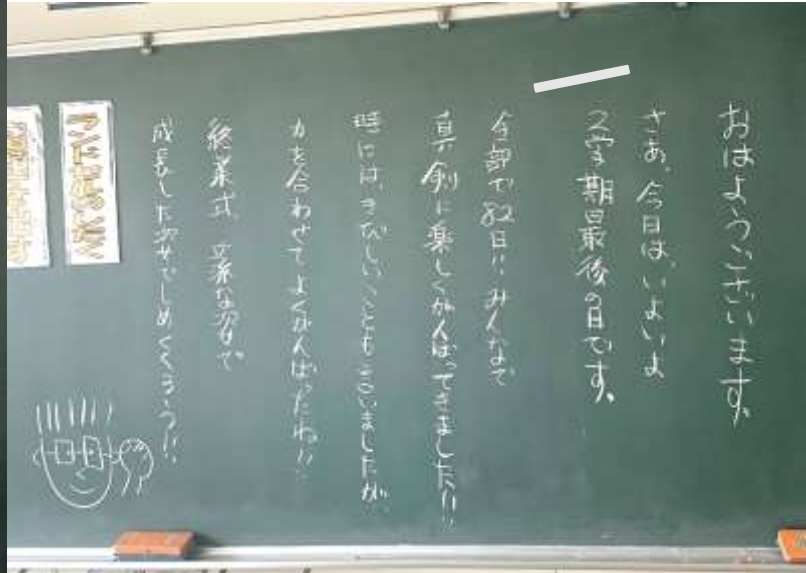 おはようございます。
さあ、今日は、いよいよ
2学期最後の日です。
全部で82日!!みんなで
真剣に楽しくがんばってきました!!
時には、きびしいこともございましたが、
力を合わせてよくがんばったね!!
終業式、立派な姿で
成長した姿でしめくくろう!!